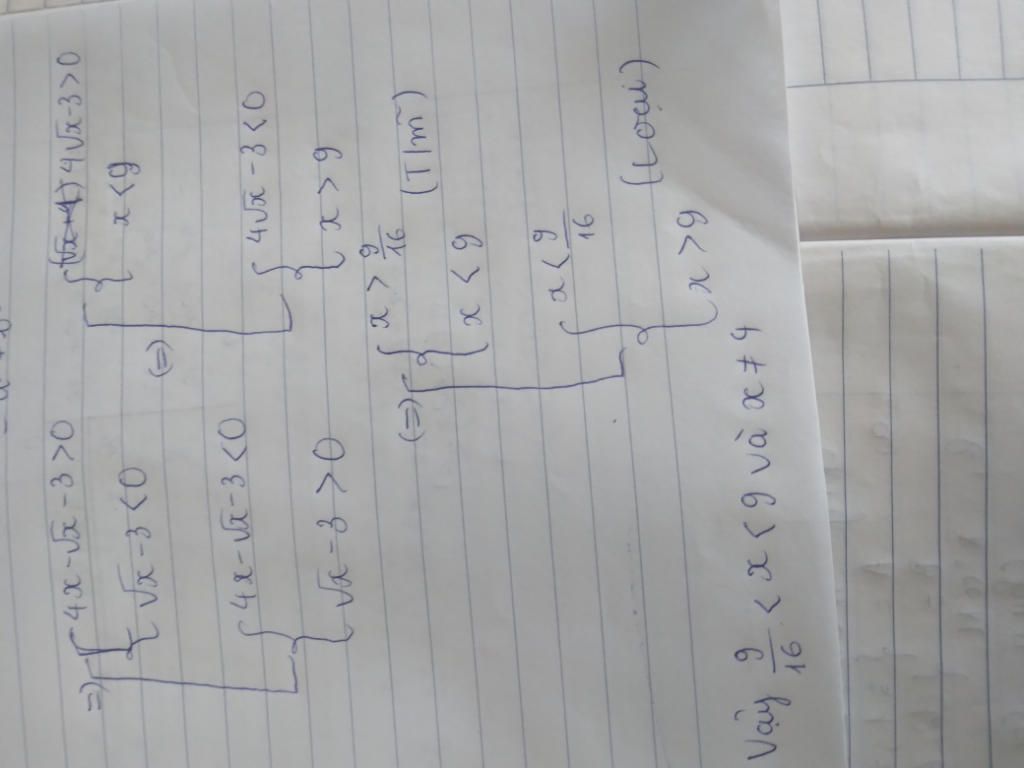 => [ { 4x - √x - 3 > 0
√x - 3 < 0
{ 4x - √x - 3 < 0
√x - 3 > 0
(=) [ { 4√x - 3 > 0
x < 9
{ 4√x - 3 < 0
x > 9
(=) [ { x > 9/16
x < 9 (T/m)
{ x < 9/16
x > 9 (Loại)
Vậy 9/16 < x < 9 và x ≠ 4